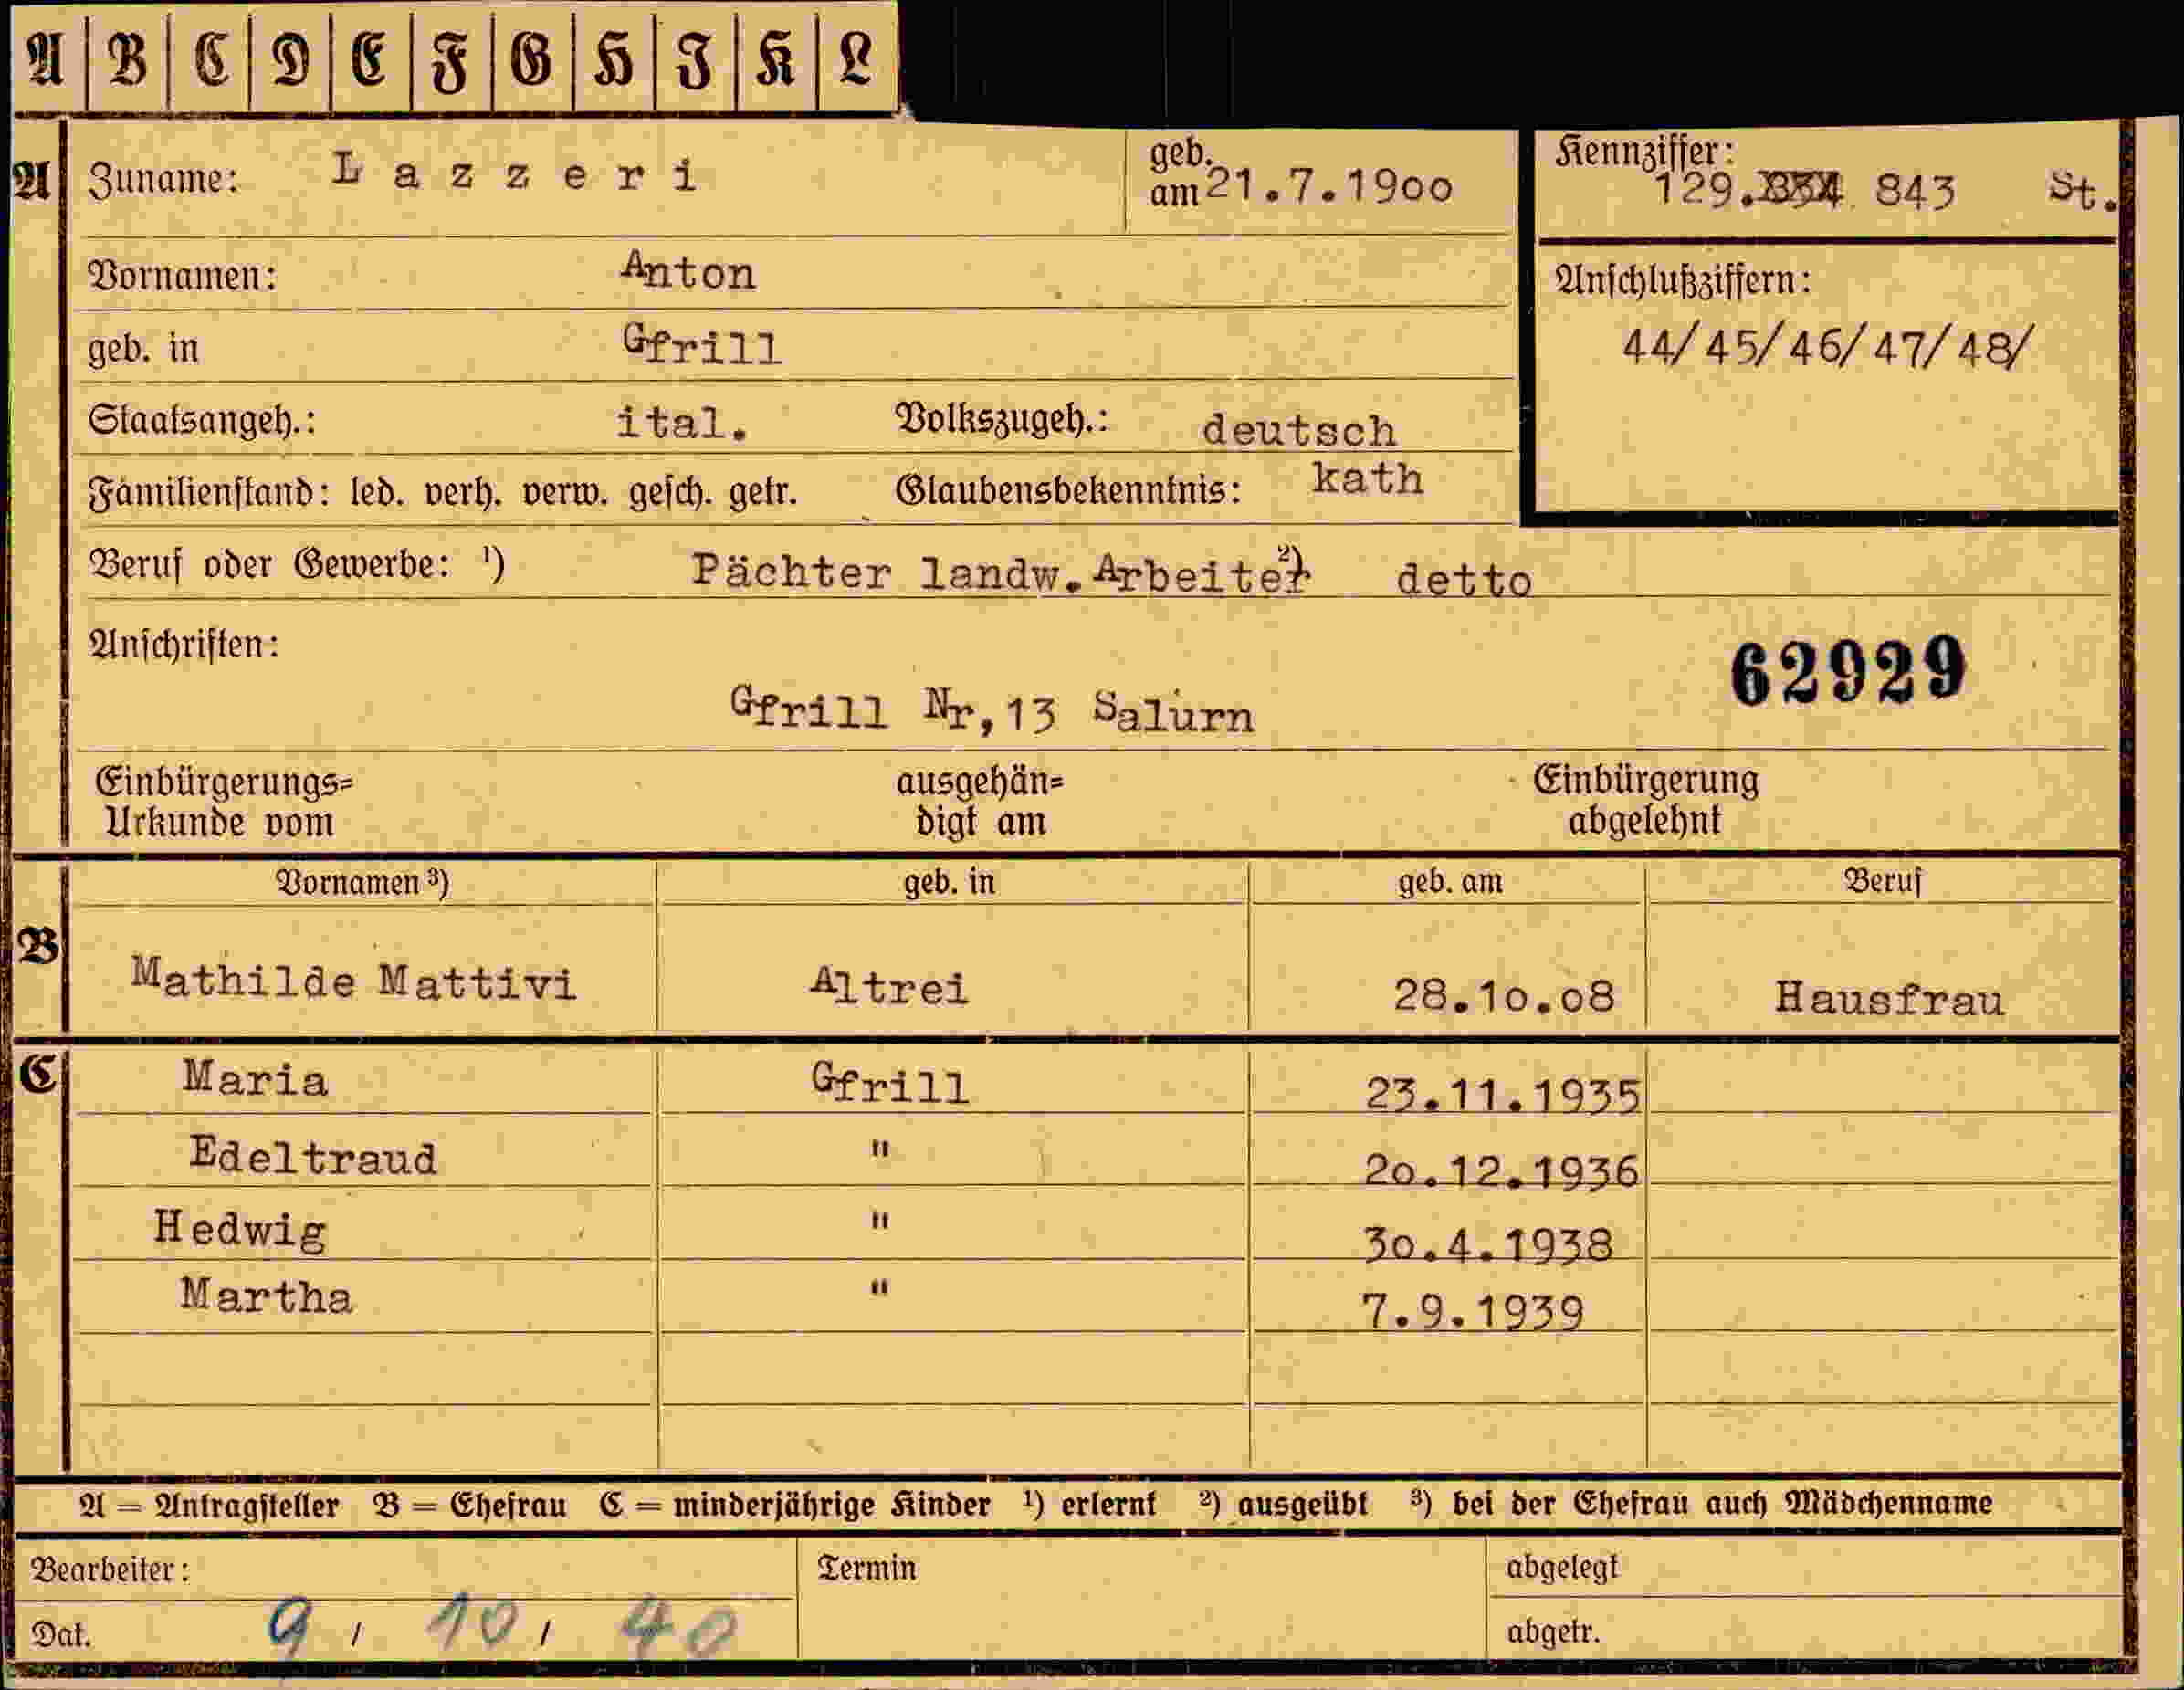 A B C D E F G H I K L
A Zuname: Lazzeri geb. am 21.7.1900 Kennziffer: 129. 843 St.
Vornamen: Anton Anschlußziffern:
geb. in Gfrill 44/45/46/47/48/
Staatsangeh.: ital. Volkszugeh.: deutsch
Familienstand: led. verh. verw. gesch. getr. Glaubensbekenntnis: kath
Beruf oder Gewerbe: ¹) Pächter landw. Arbeiter ²) detto
Anschriften: 62929
Gfrill Nr,13 Salurn
Einbürgerungs= ausgehän= Einbürgerung
Urkunde vom digt am abgelehnt
Vornamen ³) geb. in geb. am Beruf
B Mathilde Mattivi Altrei 28.10.08 Hausfrau
C Maria Gfrill 23.11.1935
Edeltraud " 20.12.1936
Hedwig " 30.4.1938
Martha " 7.9.1939
A = Antragsteller B = Ehefrau C = minderjährige Kinder ¹) erlernt ²) ausgeübt ³) bei der Ehefrau auch Mädchenname
Bearbeiter: Termin abgelegt
Dat. 9 / 10 / 40 abgetr.